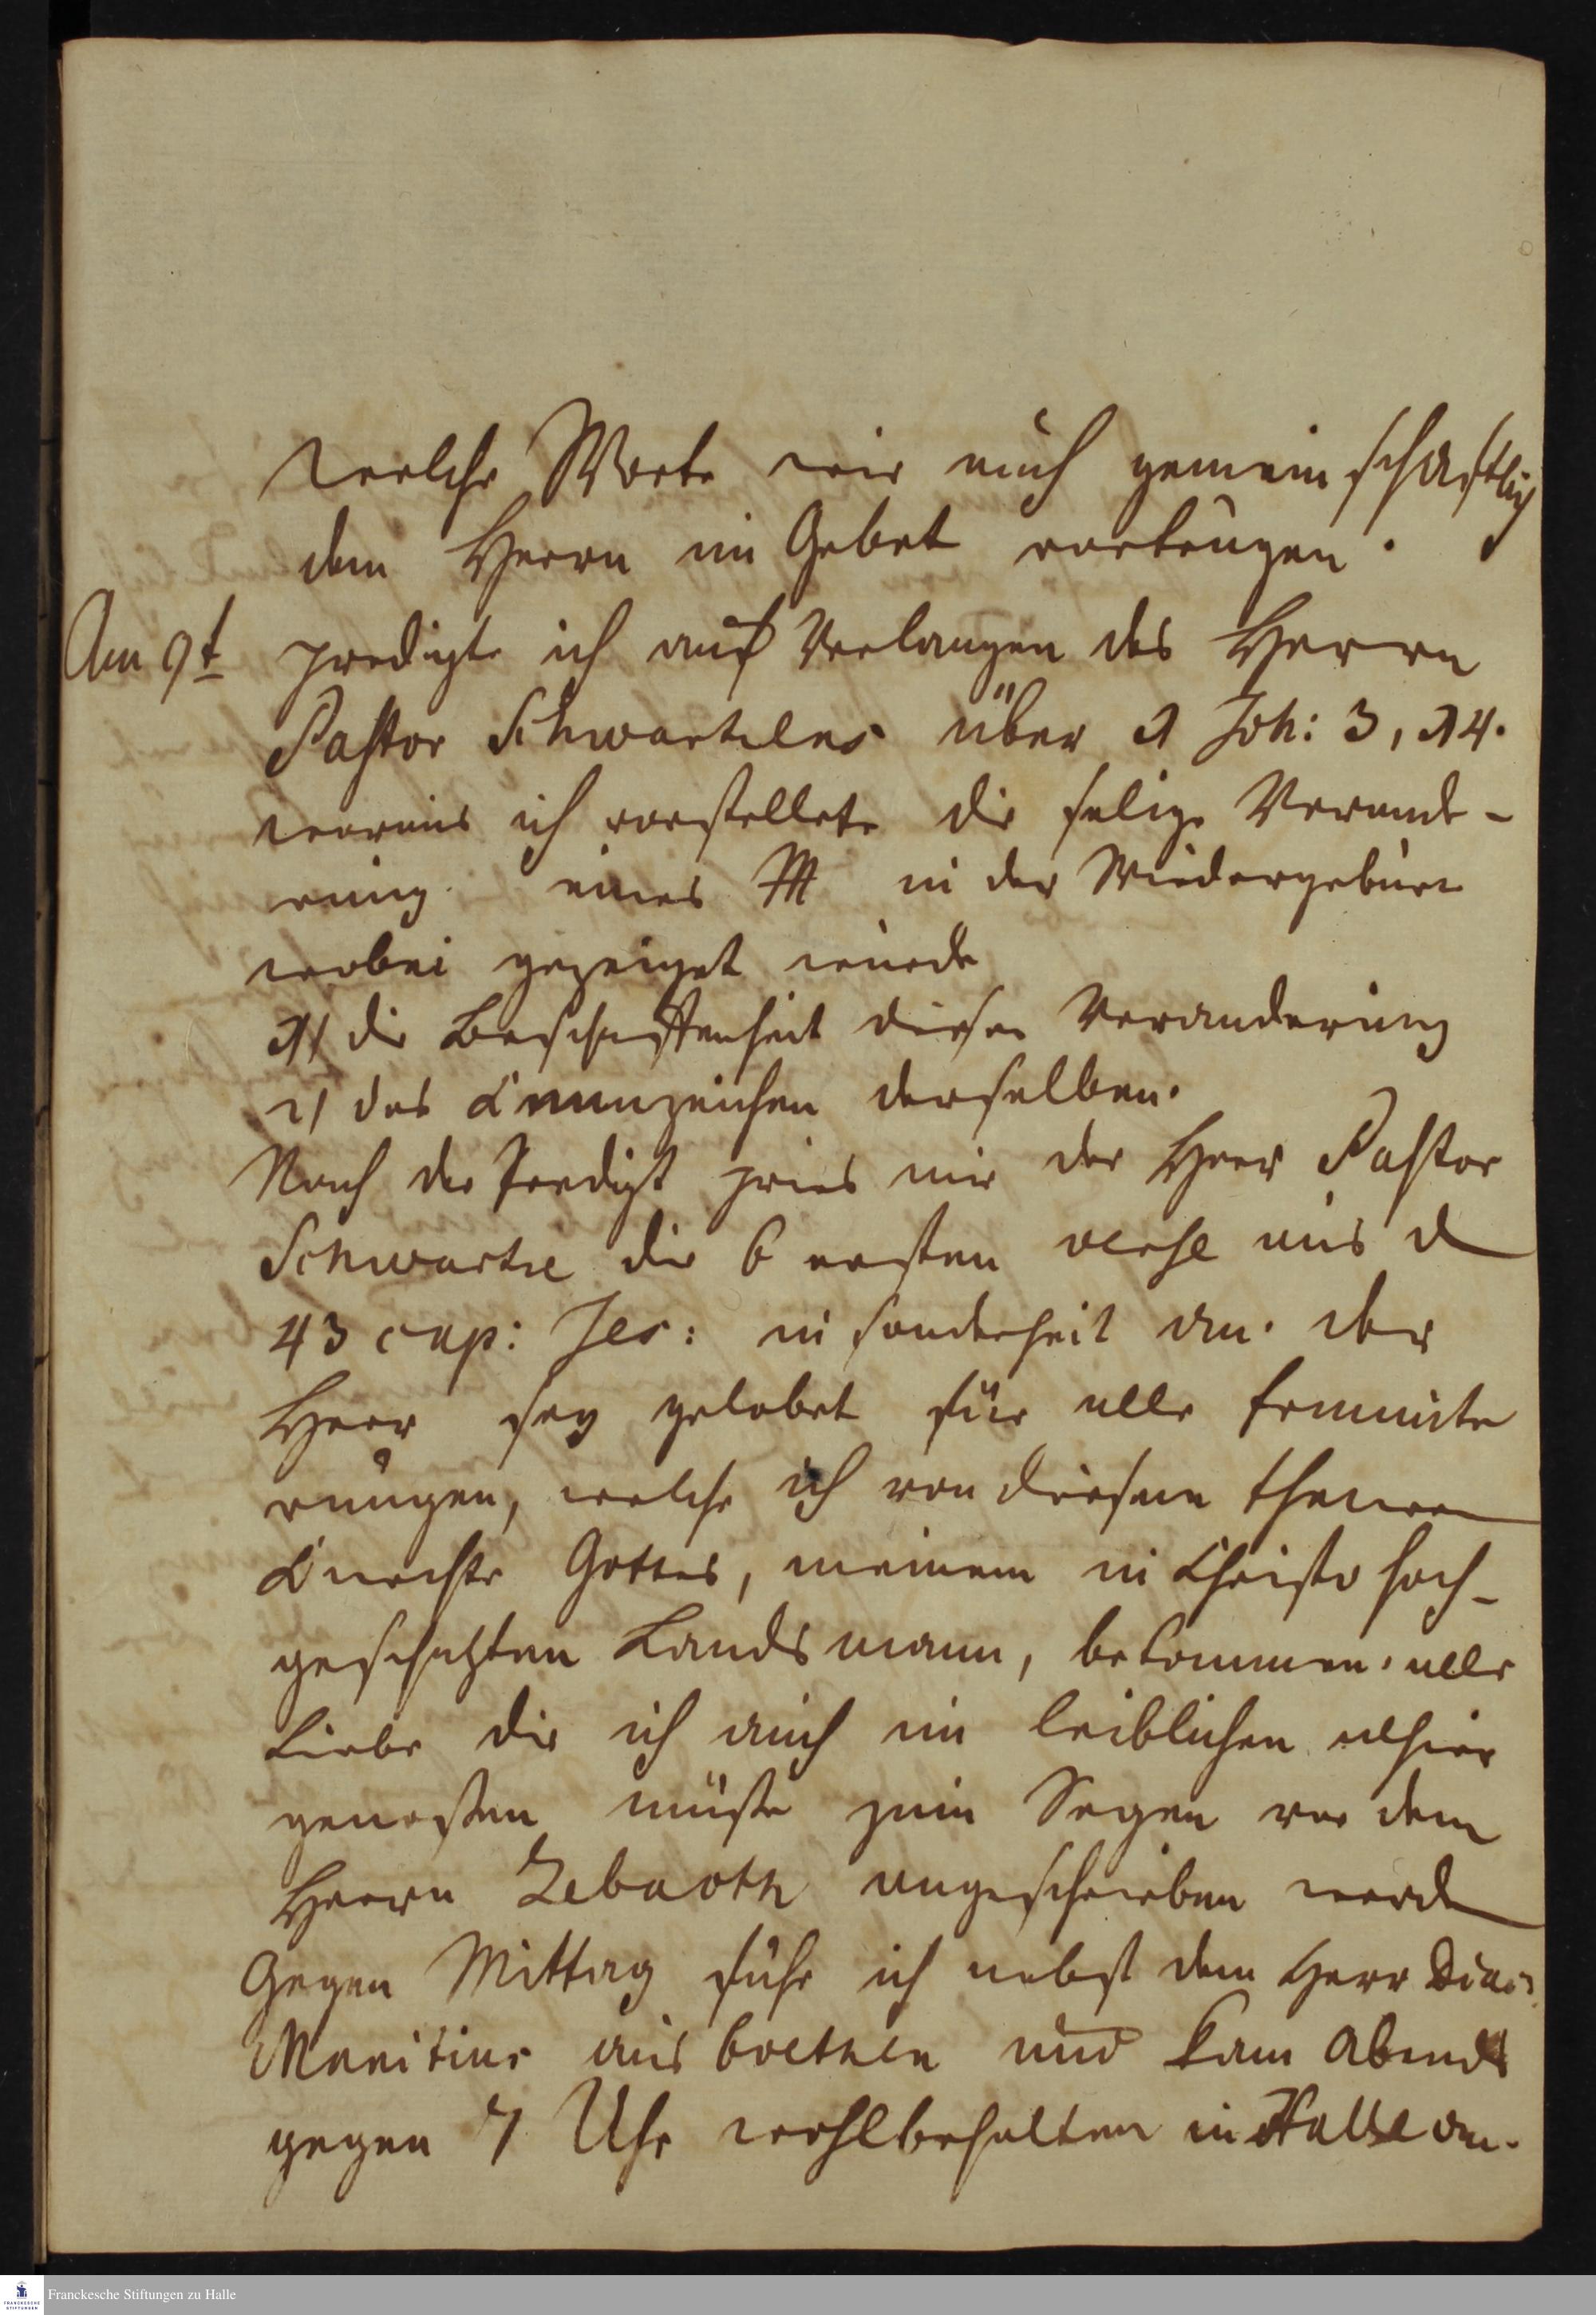 welche Worte wir auch gemeinschaftlich
dem Herrn im Gebet vortrugen.
Am 9t predigte ich auf Verlangen des Herrn
Pastor Schwartzens über 1 Joh: 3, 14.
woraus ich vorstellete die selige Verände-
rung eines M in der Wiedergeburt
wobei gezeiget wurde
1) die Beschaffenheit dieser Veranderung
2) das Kennzeichen derselben.
Nach der Predigt pries mir der Herr Pastor
Schwartze die 6 ersten verse aus d
43 cap: Jes: in sonderheit an. der
Herr sey gelobet für alle Ermunte
rungen, welche ich von diesem theuren
Knechte Gottes, meinem in Christo hoch-
geschatzten Landsmann, bekommen. alle
Liebe die ich auch im leiblichen alhier
genossen müsse zum Segen vor dem
Herrn Zebaoth angeschrieben werden
Gegen Mittag fuhr ich nebst dem Herr Diac:
Mauitius aus Coethen und kam Abends
gegen 7 Uhr wohlbehalten in Halle an.
FRANCKESCHE
STIFTUNGEN
Franckesche Stiftungen zu Halle